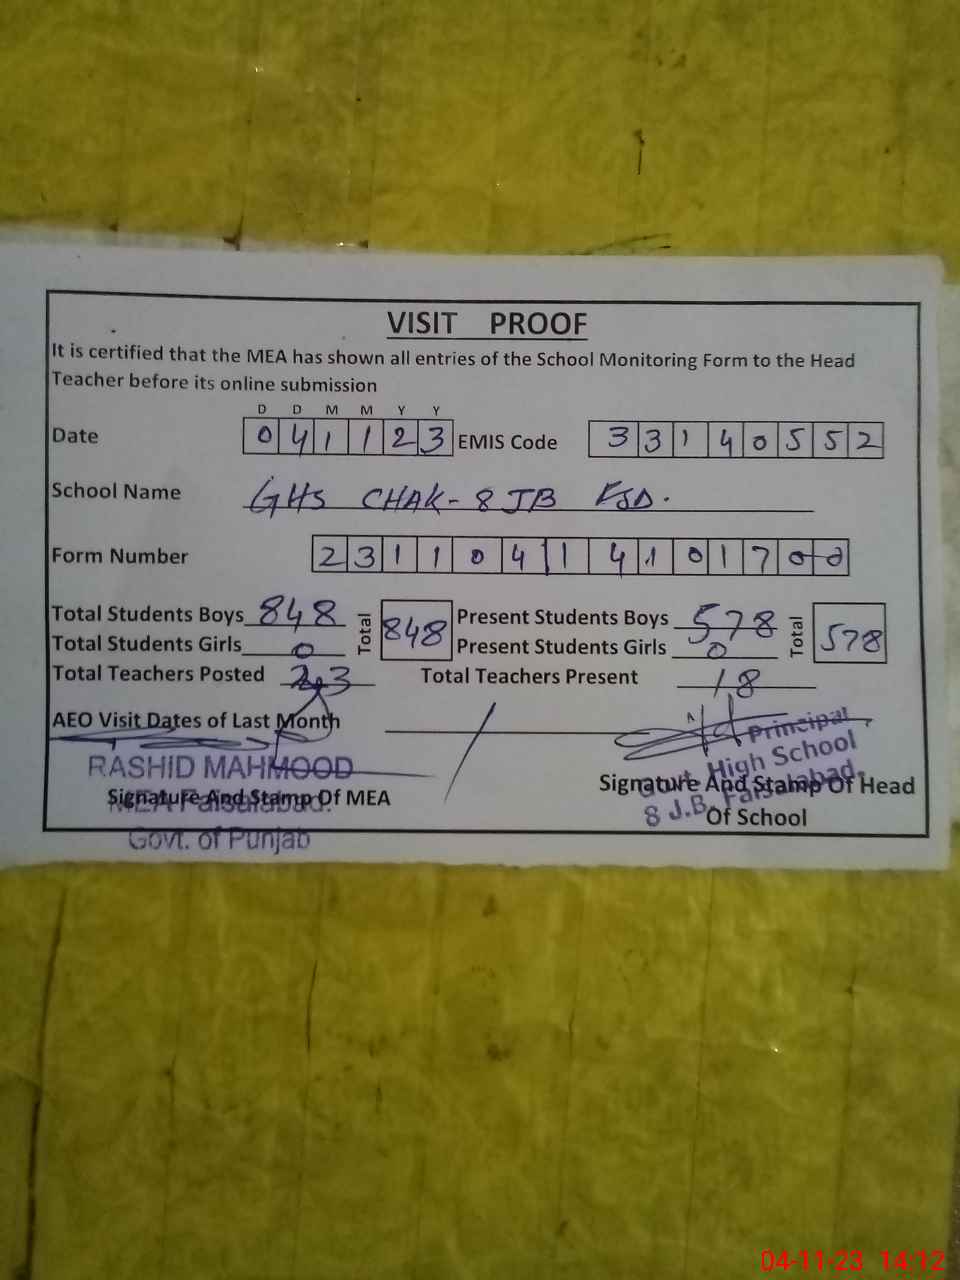 VISIT PROOF
It is certified that the MEA has shown all entries of the School Monitoring Form to the Head
Teacher before its online submission
D D M M Y Y
Date 0 4 1 1 2 3 EMIS Code 3 3 1 4 0 5 5 2
School Name GHS CHAK-8 JB FSD.
Form Number 2 3 1 1 0 4 1 4 1 0 1 7 0 0
Total Students Boys 848 Total 848 Present Students Boys 578 Total 578
Total Students Girls 0 Present Students Girls 0
Total Teachers Posted 23 Total Teachers Present 18
AEO Visit Dates of Last Month
RASHID MAHMOOD
MEA Faisalabad.
Govt. of Punjab
Signature And Stamp Of MEA
Principal
Govt. High School
8 J.B. Faisalabad.
Signature And Stamp Of Head
Of School
04-11-23 14:12